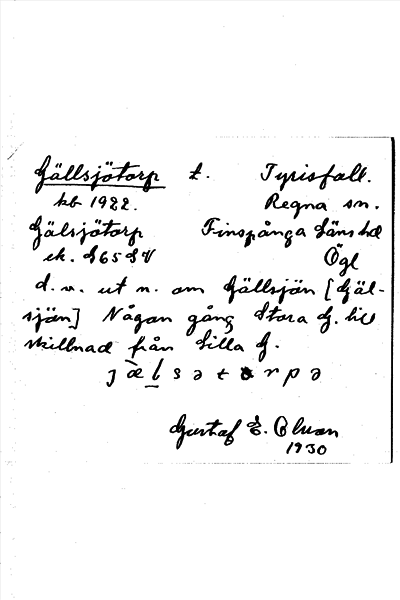 Gällsjötorp t. Tyrisfall.
kb 1922. Regna sn.
Gälsjötorp Finspånga läns hd
ek. S65SV Ögl
d.v. ut n. om Gällsjön [Gäl-
sjön] Någon gång Stora G. till
skillnad från Lilla G.
Gustaf E. Olson
1930